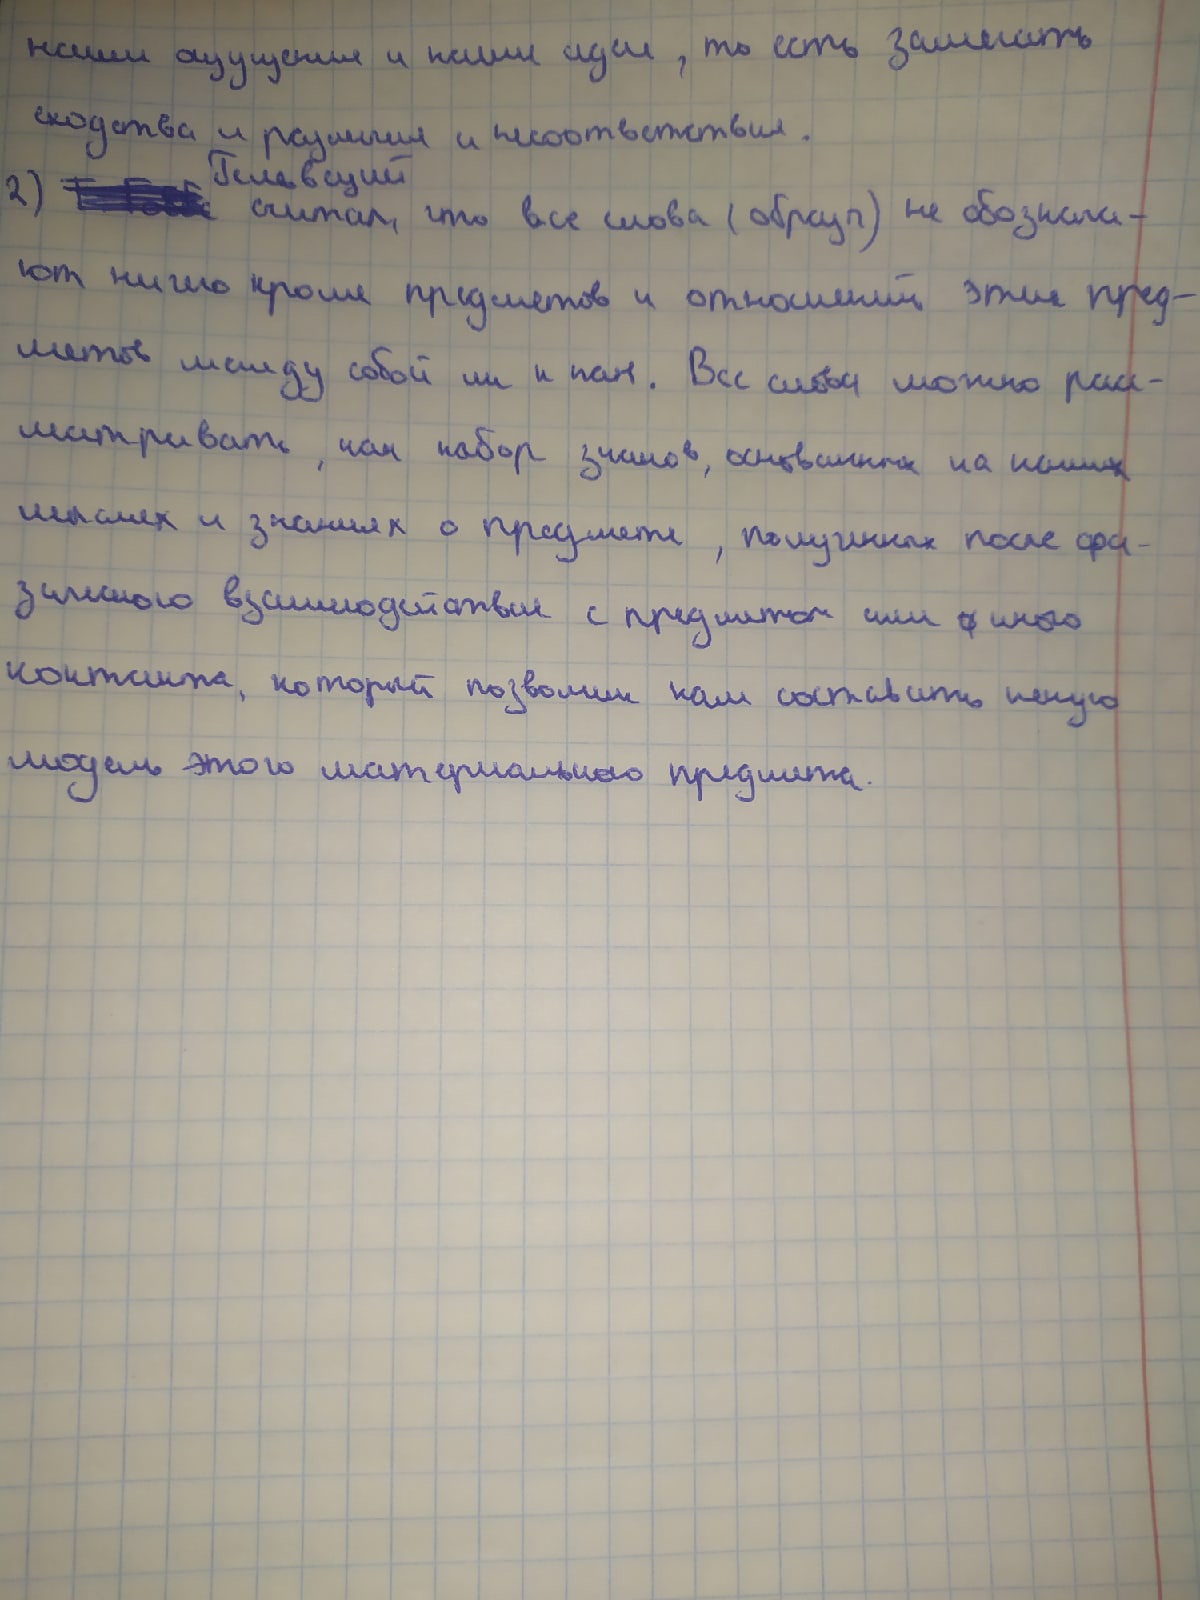 наши ощущения и наши идеи, то есть замечать
сходства и различия и несоответствия.
Гельвеций
2) считал, что все слова (образы) не обознача-
ют ничего кроме предметов и отношений этих пред-
метов между собой или к нам. Все слова можно расс-
матривать, как набор знаков, основанных на наших
мыслях и знаниях о предмете, полученных после фи-
зического взаимодействия с предметом или иного
контакта, который позволил нам составить некую
модель этого материального предмета.